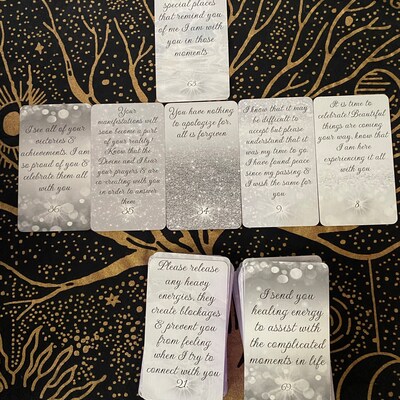 special places
that remind you
of me I am with
you in those
moments
63
I see all of your
victories &
achievements. I am
so proud of you &
celebrate them all
with you
36
Your
manifestations will
soon become a part
of your reality!
Know that the
Divine and I hear
your prayers & are
co-creating with you
in order to answer
them
35
You have nothing
to apologize for,
all is forgiven
34
I know that it may
be difficult to
accept but please
understand that it
was my time to go.
I have found peace
since my passing &
I wish the same for
you
9
It is time to
celebrate! Beautiful
things are coming
your way, know that
I am here
experiencing it all
with you
8
Please release
any heavy
energies, they
create blockages
& prevent you
from feeling
when I try to
connect with you
21
I send you
healing energy
to assist with
the complicated
moments in life